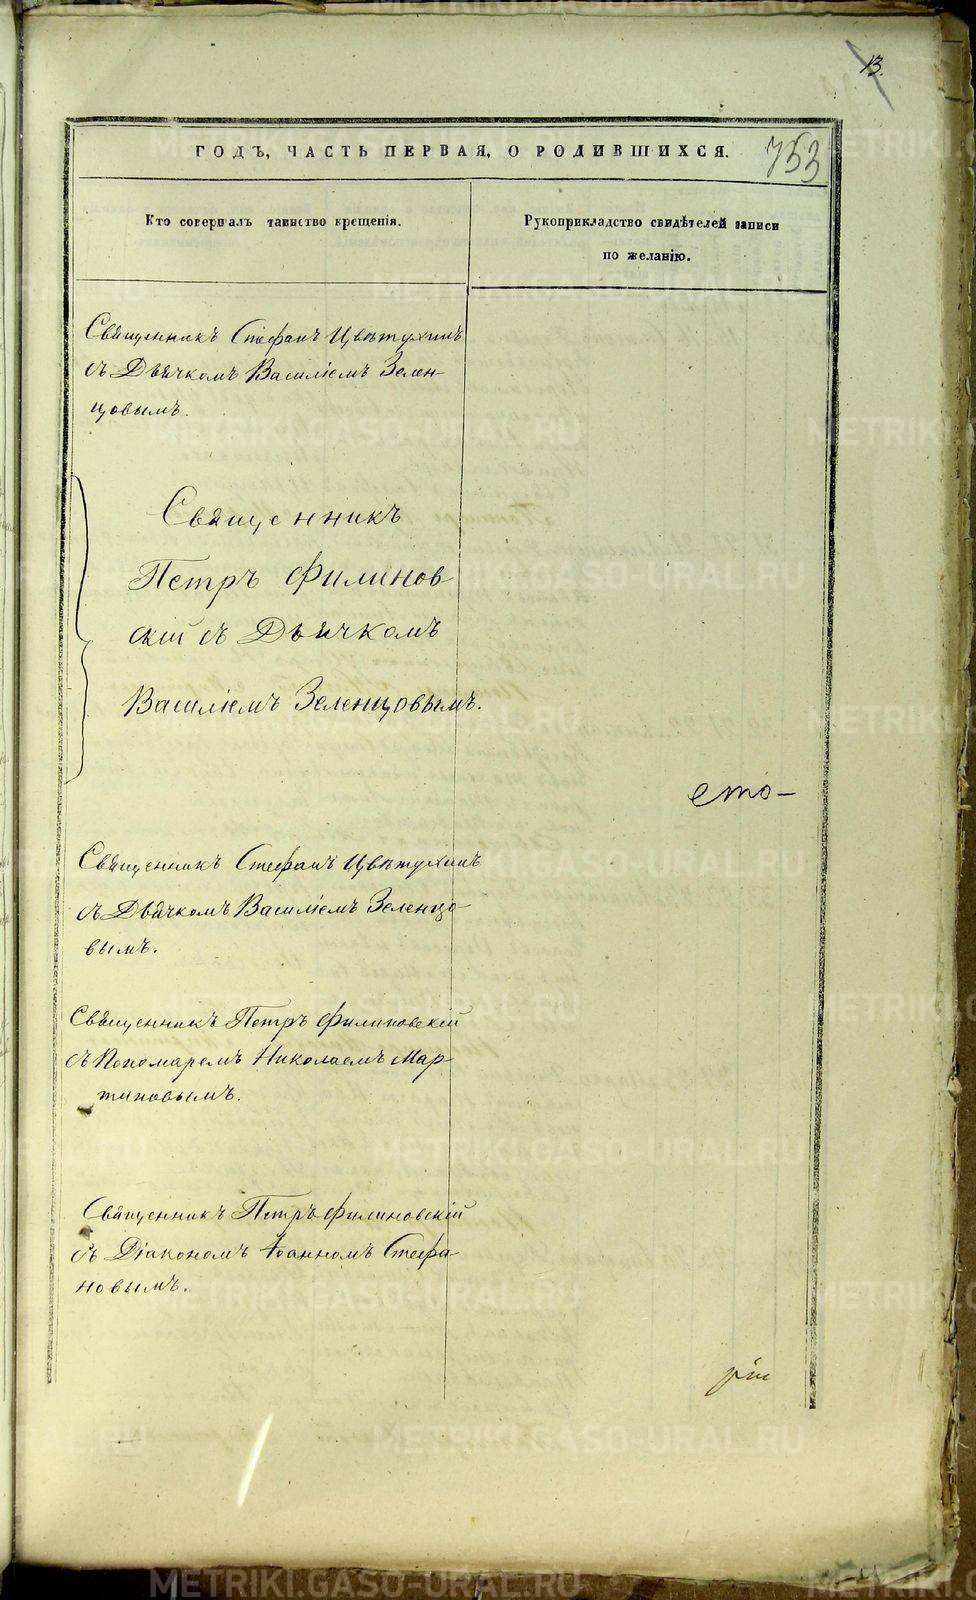 13.
ГОДЪ, ЧАСТЬ ПЕРВАЯ, О РОДИВШИХСЯ.
753
Кто совершалъ таинство крещенія.
Рукоприкладство свидѣтелей записи
по желанію.
Священникъ Стефанъ Цвѣтухинъ
съ Дьячкомъ Василіемъ Зелен-
цовымъ.
Священникъ
Петръ Филинов
скій съ Дьячкомъ
Василіемъ Зеленцовымъ.
сто-
Священникъ Стефанъ Цвѣтухинъ
съ Дьячкомъ Василіемъ Зеленцо-
вымъ.
Священникъ Петръ Филиновскій
съ Пономаремъ Николаемъ Мар-
тиновымъ.
Священникъ Петръ Филиновскій
съ Діакономъ Іоанномъ Стефа-
новымъ.
METRIKI.GASO-URAL.RU